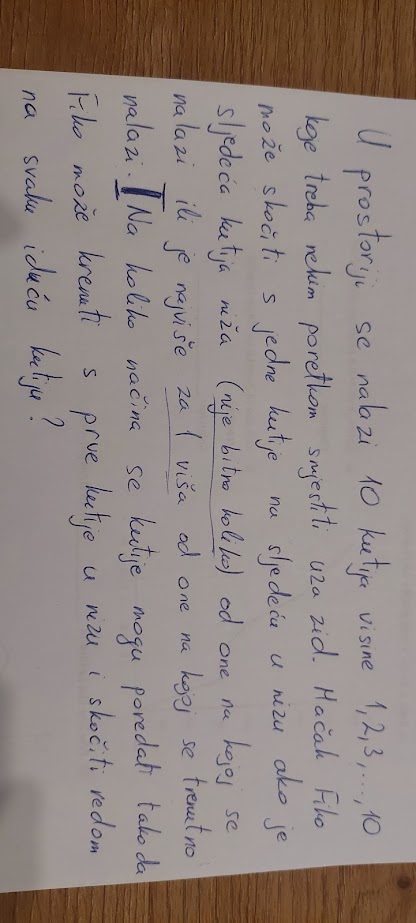 U prostoriji se nalazi 10 kutija visine 1,2,3,...,10
koje treba nekim poretkom smjestiti uza zid. Mačak Fiko
može skočiti s jedne kutije na sljedeću u nizu ako je
sljedeća kutija niža (nije bitno koliko) od one na kojoj se
nalazi ili je najviše za 1 viša od one na kojoj se trenutno
nalazi. Na koliko načina se kutije mogu poredati tako da
Fiko može krenuti s prve kutije u nizu i skočiti redom
na svaku iduću kutiju?